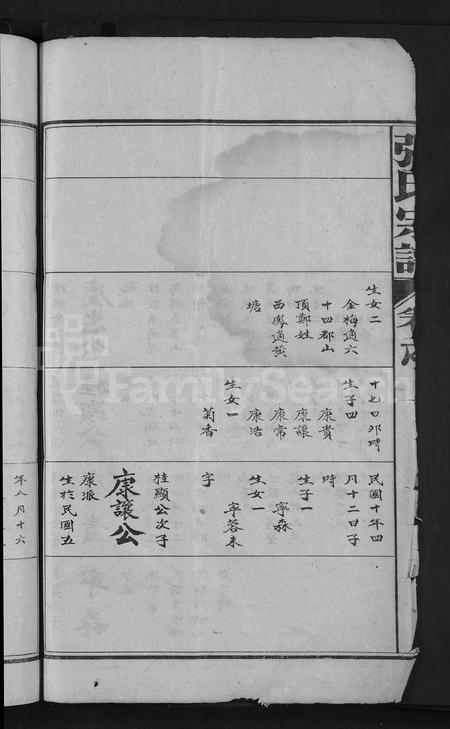 張氏宗譜
生女二
金梅適六
十四都山
頂鄭姓
西鳳適黃
塘
十七日卯時
生子四
康貴
康讓
康常
康浩
生女一
菊香
民國十年四
月十二日子
時
生子一
寧森
生女一
寧蓉未
字
康讓公
桂顯公次子
康派
生於民國五
年八月十六
FamilySearch